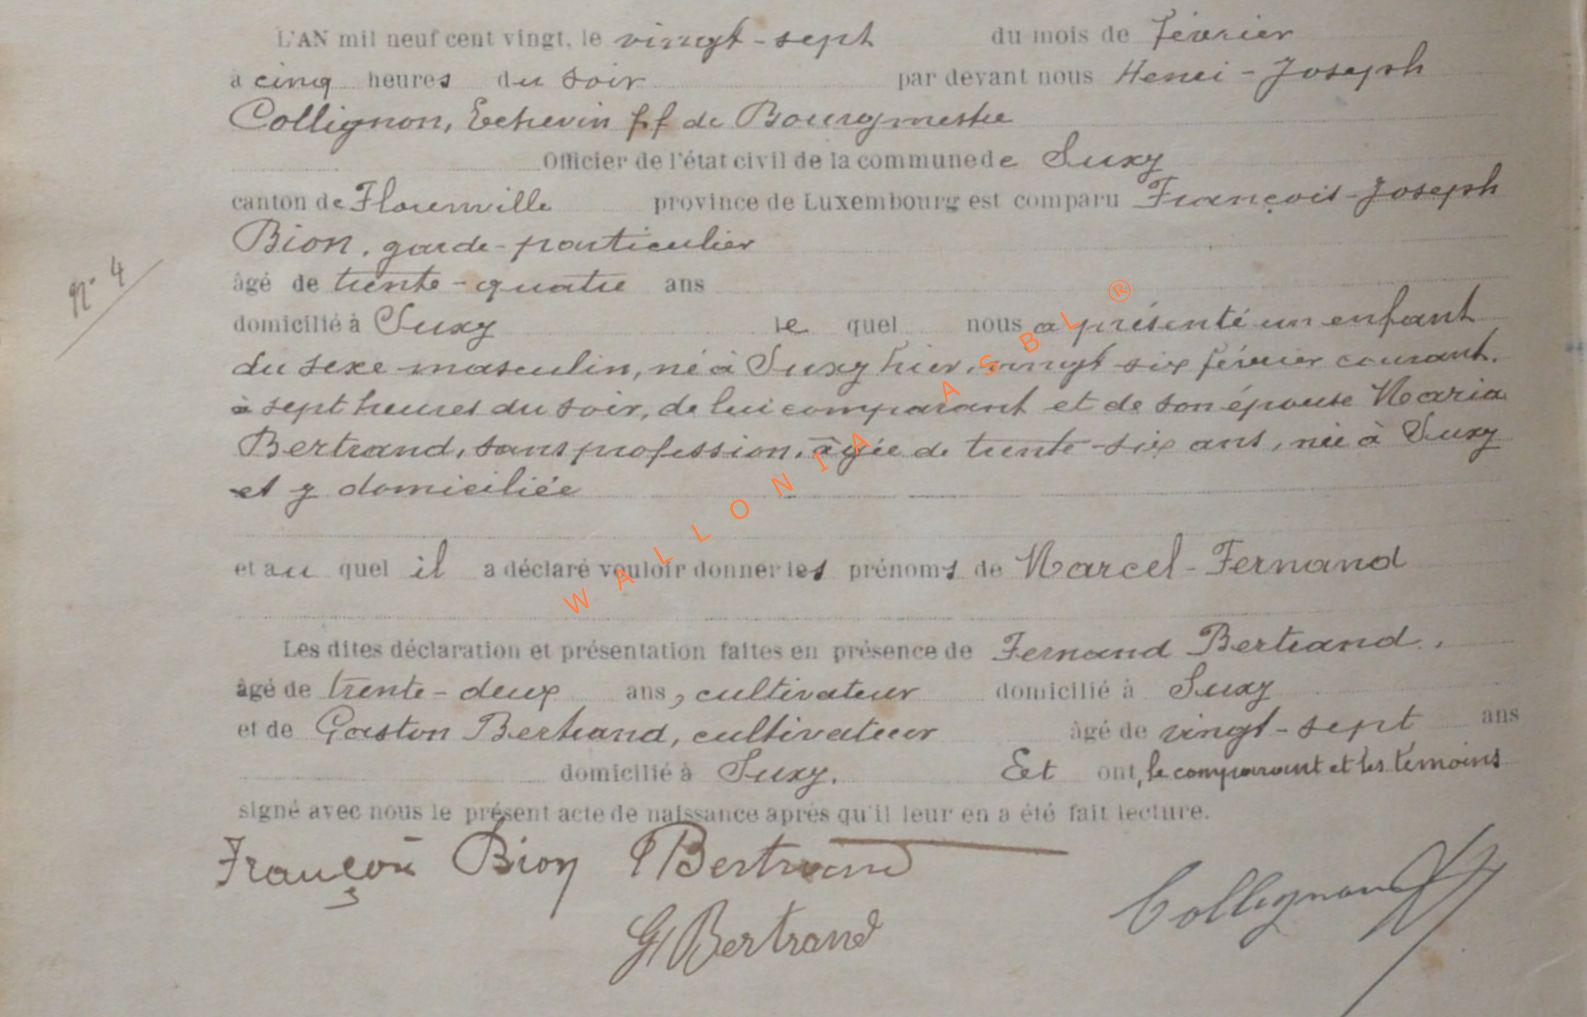 L'AN mil neuf cent vingt, le vingt-sept du mois de Février
à cinq heures du soir par devant nous Henri-Joseph
Collignon, Echevin ff de Bourgmestre
Officier de l'état civil de la commune de Suxy
canton de Florenville province de Luxembourg est comparu François-Joseph
Bion, garde-particulier
n° 4
âgé de trente-quatre ans
domicilié à Suxy le quel nous a présenté un enfant
du sexe masculin, né à Suxy hier, vingt-six février courant.
à sept heures du soir, de lui comparant et de son épouse Maria
Bertrand, sans profession, âgée de trente-six ans, née à Suxy
et y domiciliée
et au quel il a déclaré vouloir donner les prénoms de Marcel-Fernand
Les dites déclaration et présentation faites en présence de Fernand Bertrand,
âgé de trente-deux ans, cultivateur domicilié à Suxy
et de Gaston Bertrand, cultivateur âgé de vingt-sept ans
domicilié à Suxy. Et ont, le comparant et les témoins
signé avec nous le présent acte de naissance après qu'il leur en a été fait lecture.
François Bion F Bertrand
G Bertrand Collignon HJ
WALLONIA ASBL ®